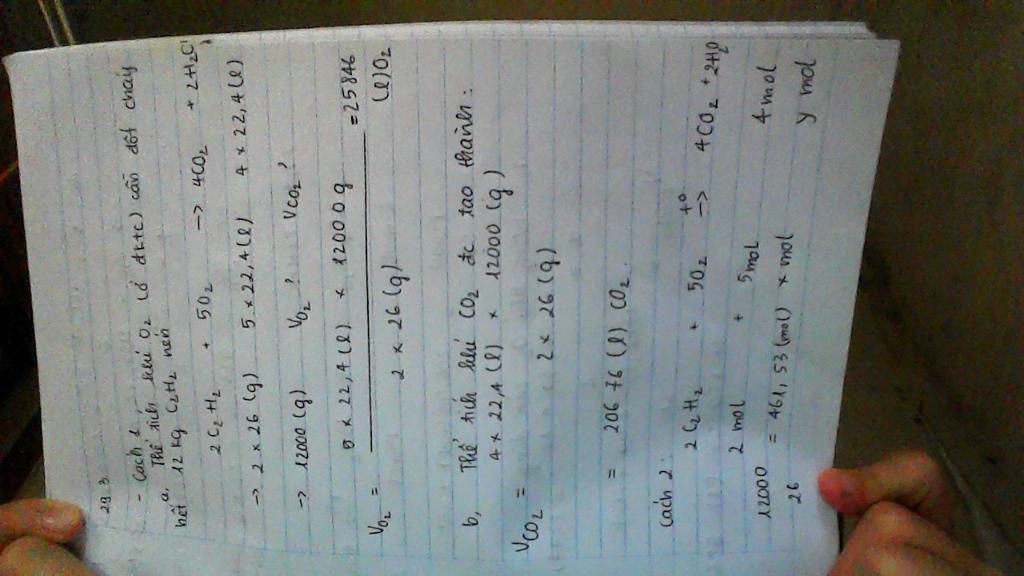 29.3
- Cách 1
a, Thể tích khí O2 (ở đktc) cần đốt cháy
hết 12 kg C2H2 nến
2C2H2 + 5O2 -> 4CO2 + 2H2O
-> 2 x 26 (g) 5 x 22,4 (l) 4 x 22,4 (l)
-> 12000 (g) VO2 ? VCO2 ?
VO2 = 5 x 22,4 (l) x 12000g = 25846
2 x 26 (g) (l) O2
b, Thể tích khí CO2 đc tao thành :
VCO2 = 4 x 22,4 (l) x 12000 (g)
2 x 26 (g)
= 20676 (l) CO2.
Cách 2 :
2C2H2 + 5O2 t° -> 4CO2 + 2H2O
2 mol + 5 mol 4 mol
12000 = 461,53 (mol) x mol y mol
26